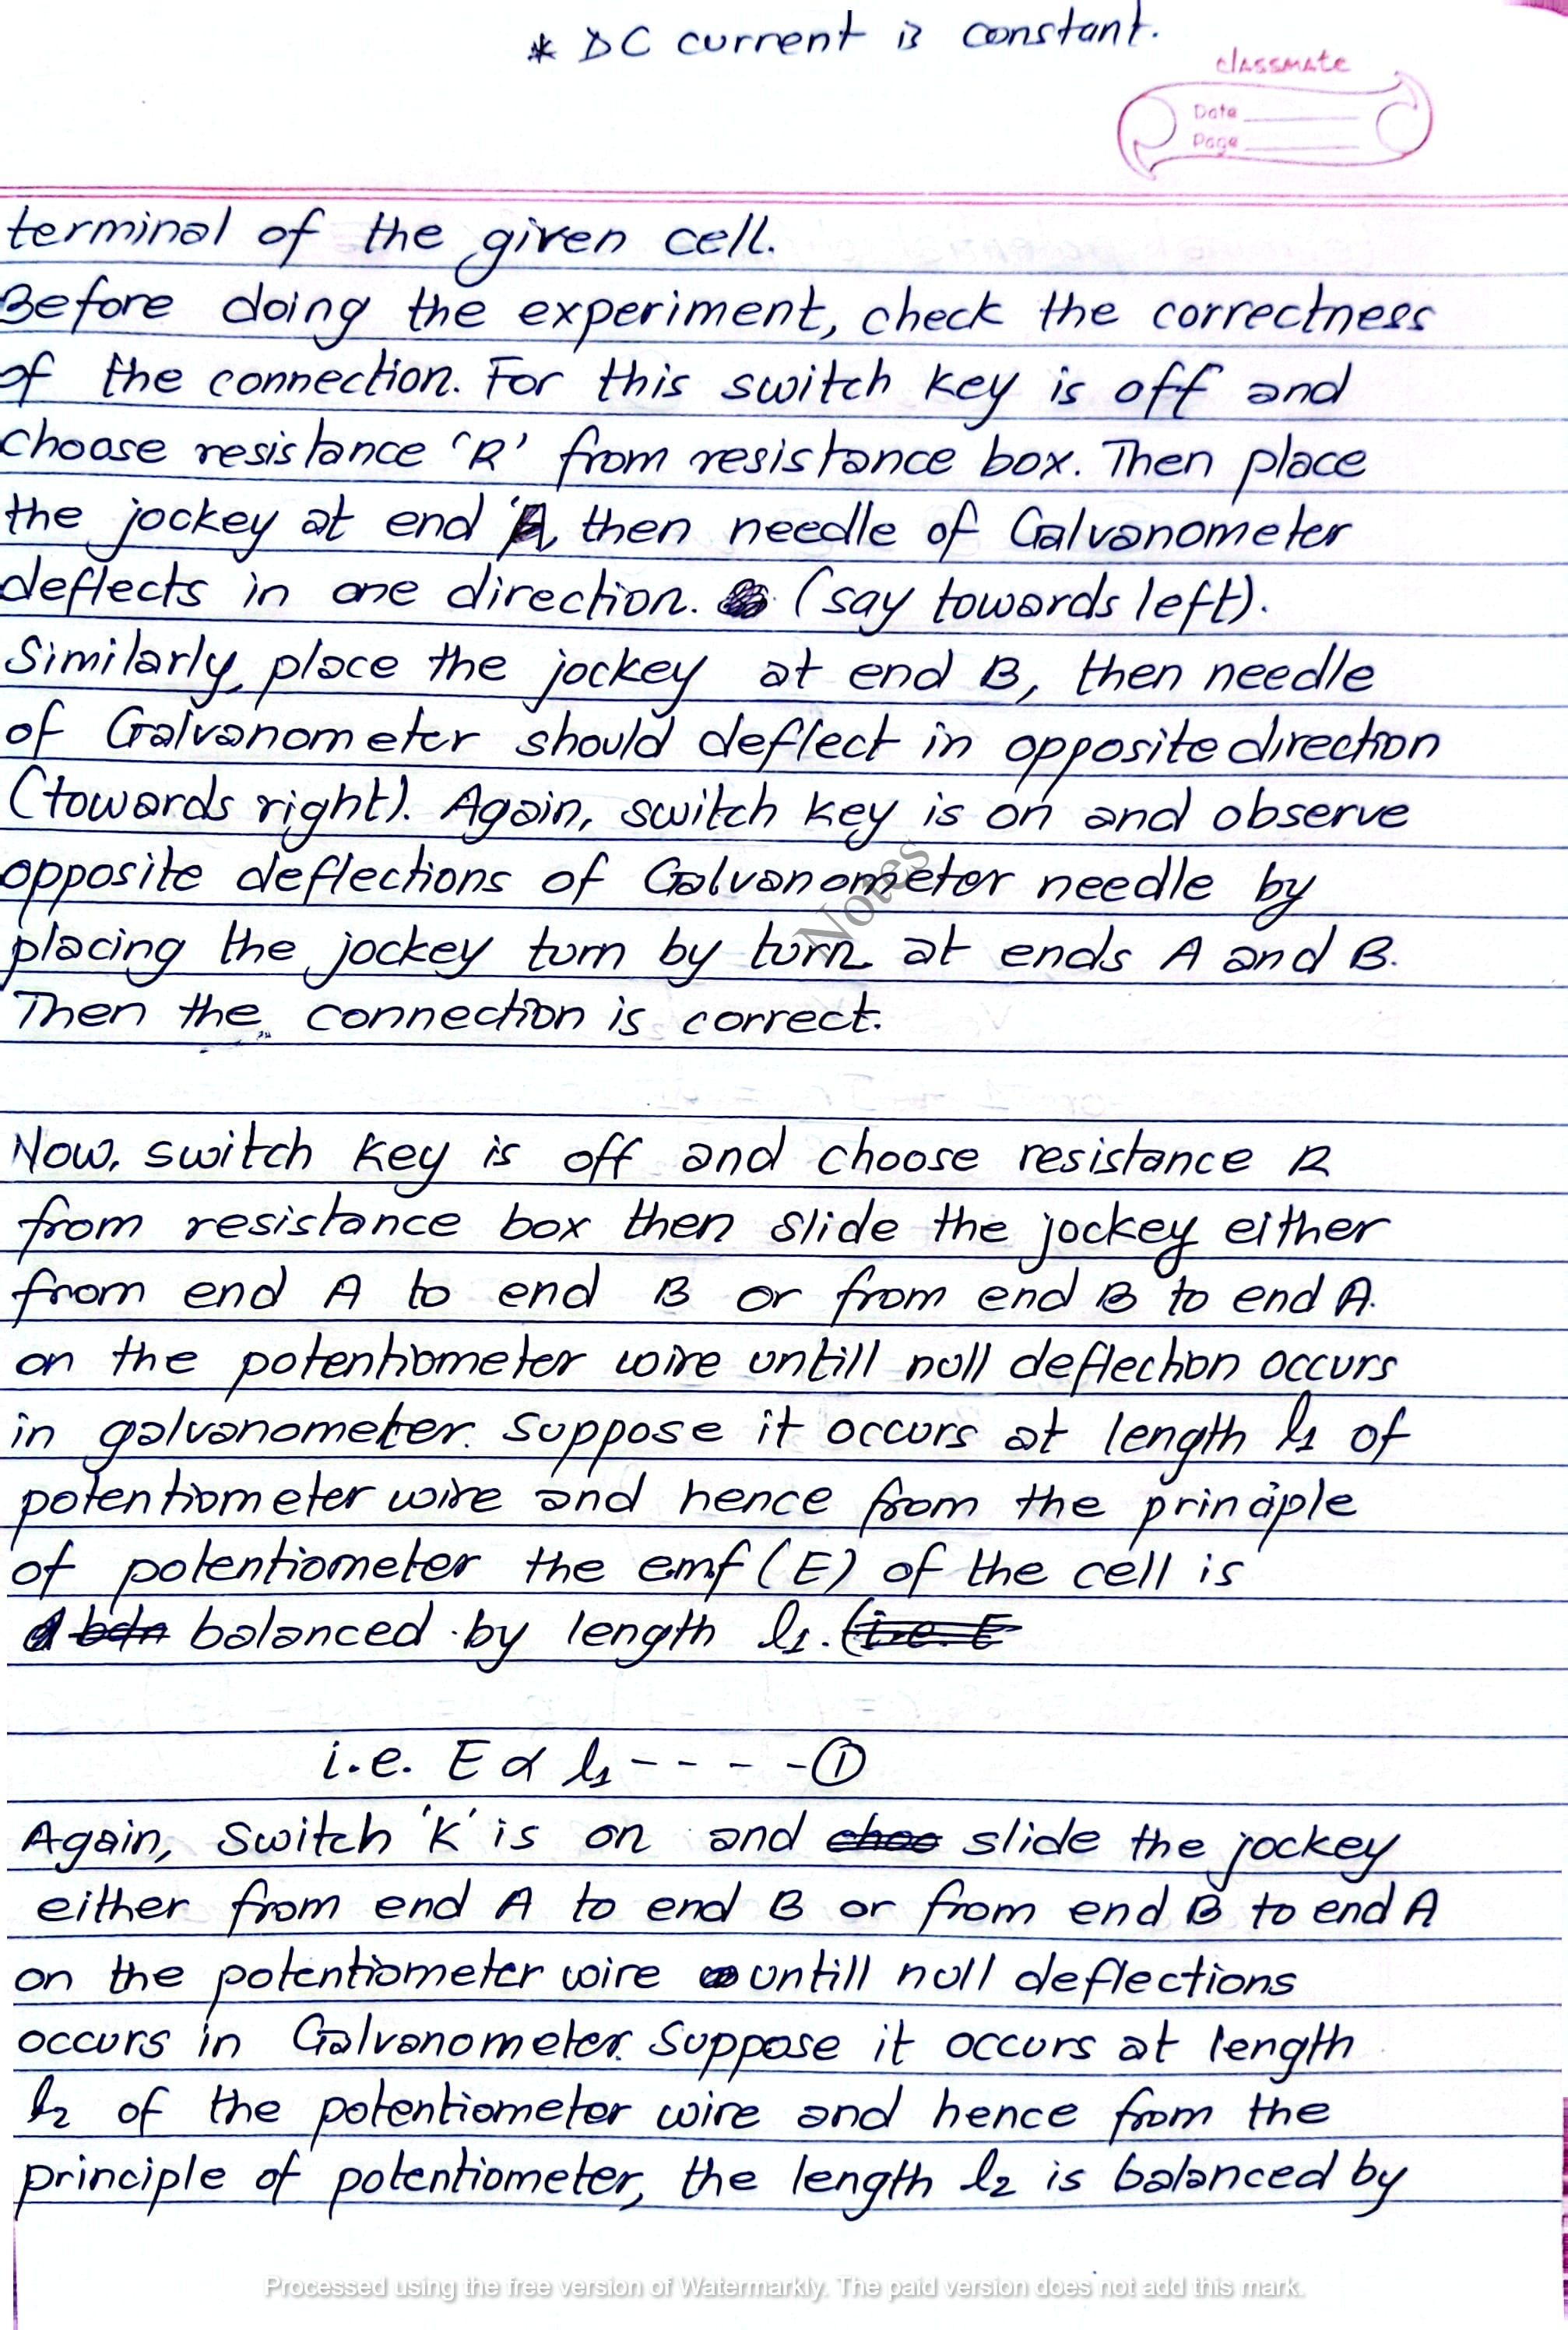 * DC current is constant.
classmate
Date
Page
terminal of the given cell.
Before doing the experiment, check the correctness
of the connection. For this switch key is off and
choose resistance 'R' from resistance box. Then place
the jockey at end 'A, then needle of Galvanometer
deflects in one direction. (say towards left).
Similarly, place the jockey at end B, then needle
of Galvanometer should deflect in opposite direction
(towards right). Again, switch key is on and observe
opposite deflections of Galvanometer needle by
placing the jockey turn by turn at ends A and B.
Then the connection is correct.
Notes
Now, switch key is off and choose resistance R
from resistance box then slide the jockey either
from end A to end B or from end B to end A.
on the potentiometer wire untill null deflection occurs
in galvanometer. Suppose it occurs at length l₁ of
potentiometer wire and hence from the principle
of potentiometer the emf (E) of the cell is
balanced by length l₁. (i.e. E
i.e. E ∝ l₁ - - - - ①
Again, switch 'K' is on and choo slide the jockey
either from end A to end B or from end B to end A
on the potentiometer wire untill null deflections
occurs in Galvanometer. Suppose it occurs at length
l₂ of the potentiometer wire and hence from the
principle of potentiometer, the length l₂ is balanced by
Processed using the free version of Watermarkly. The paid version does not add this mark.